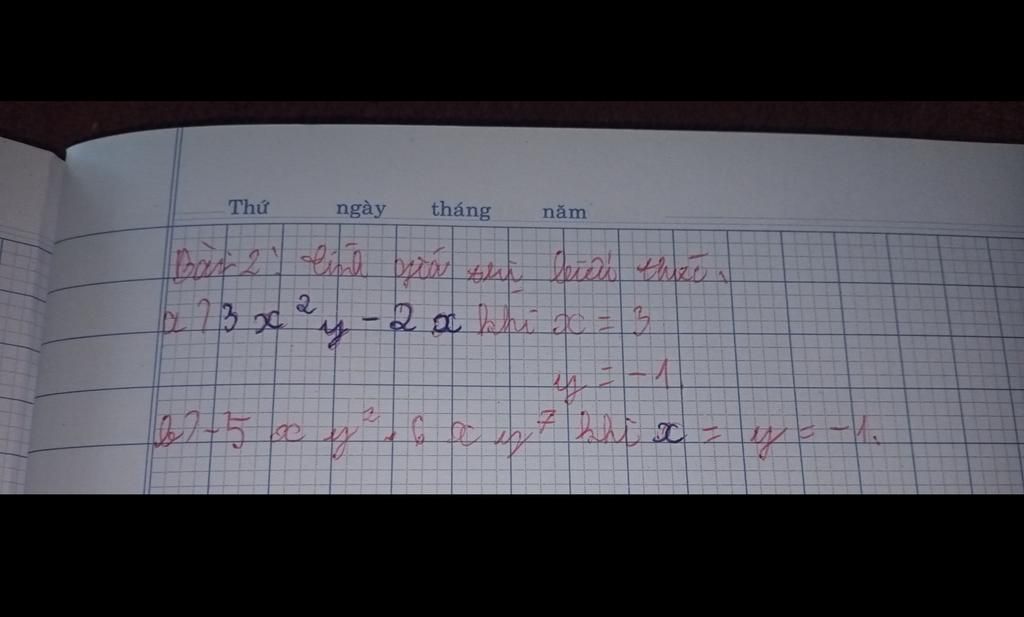 Thứ ngày tháng năm
Bài 2: tính giá trị biểu thức.
a) 3x²y - 2x khi x = 3
y = -1
b) -5xy². 6xy⁷ khi x = y = -1.